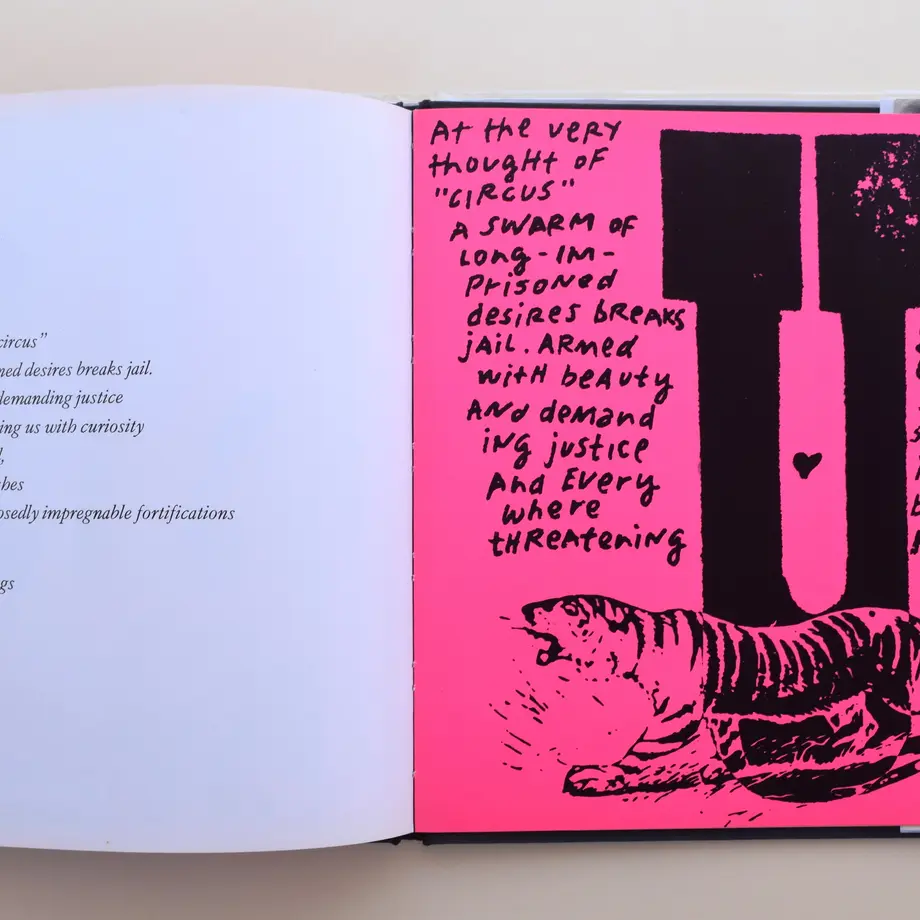 circus”
ned desires breaks jail.
demanding justice
ing us with curiosity
shes
osedly impregnable fortifications
gs
At the very
thought of
"CIRCUS"
A SWARM OF
Long-IM-
Prisoned
desires breaks
jAil. ARmed
witH beAuty
ANd demand
iNg justice
And Every
where
tHReAteniNg
U